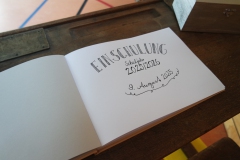 EINSCHULUNG
Schuljahr
2025/2026
9. August 2025